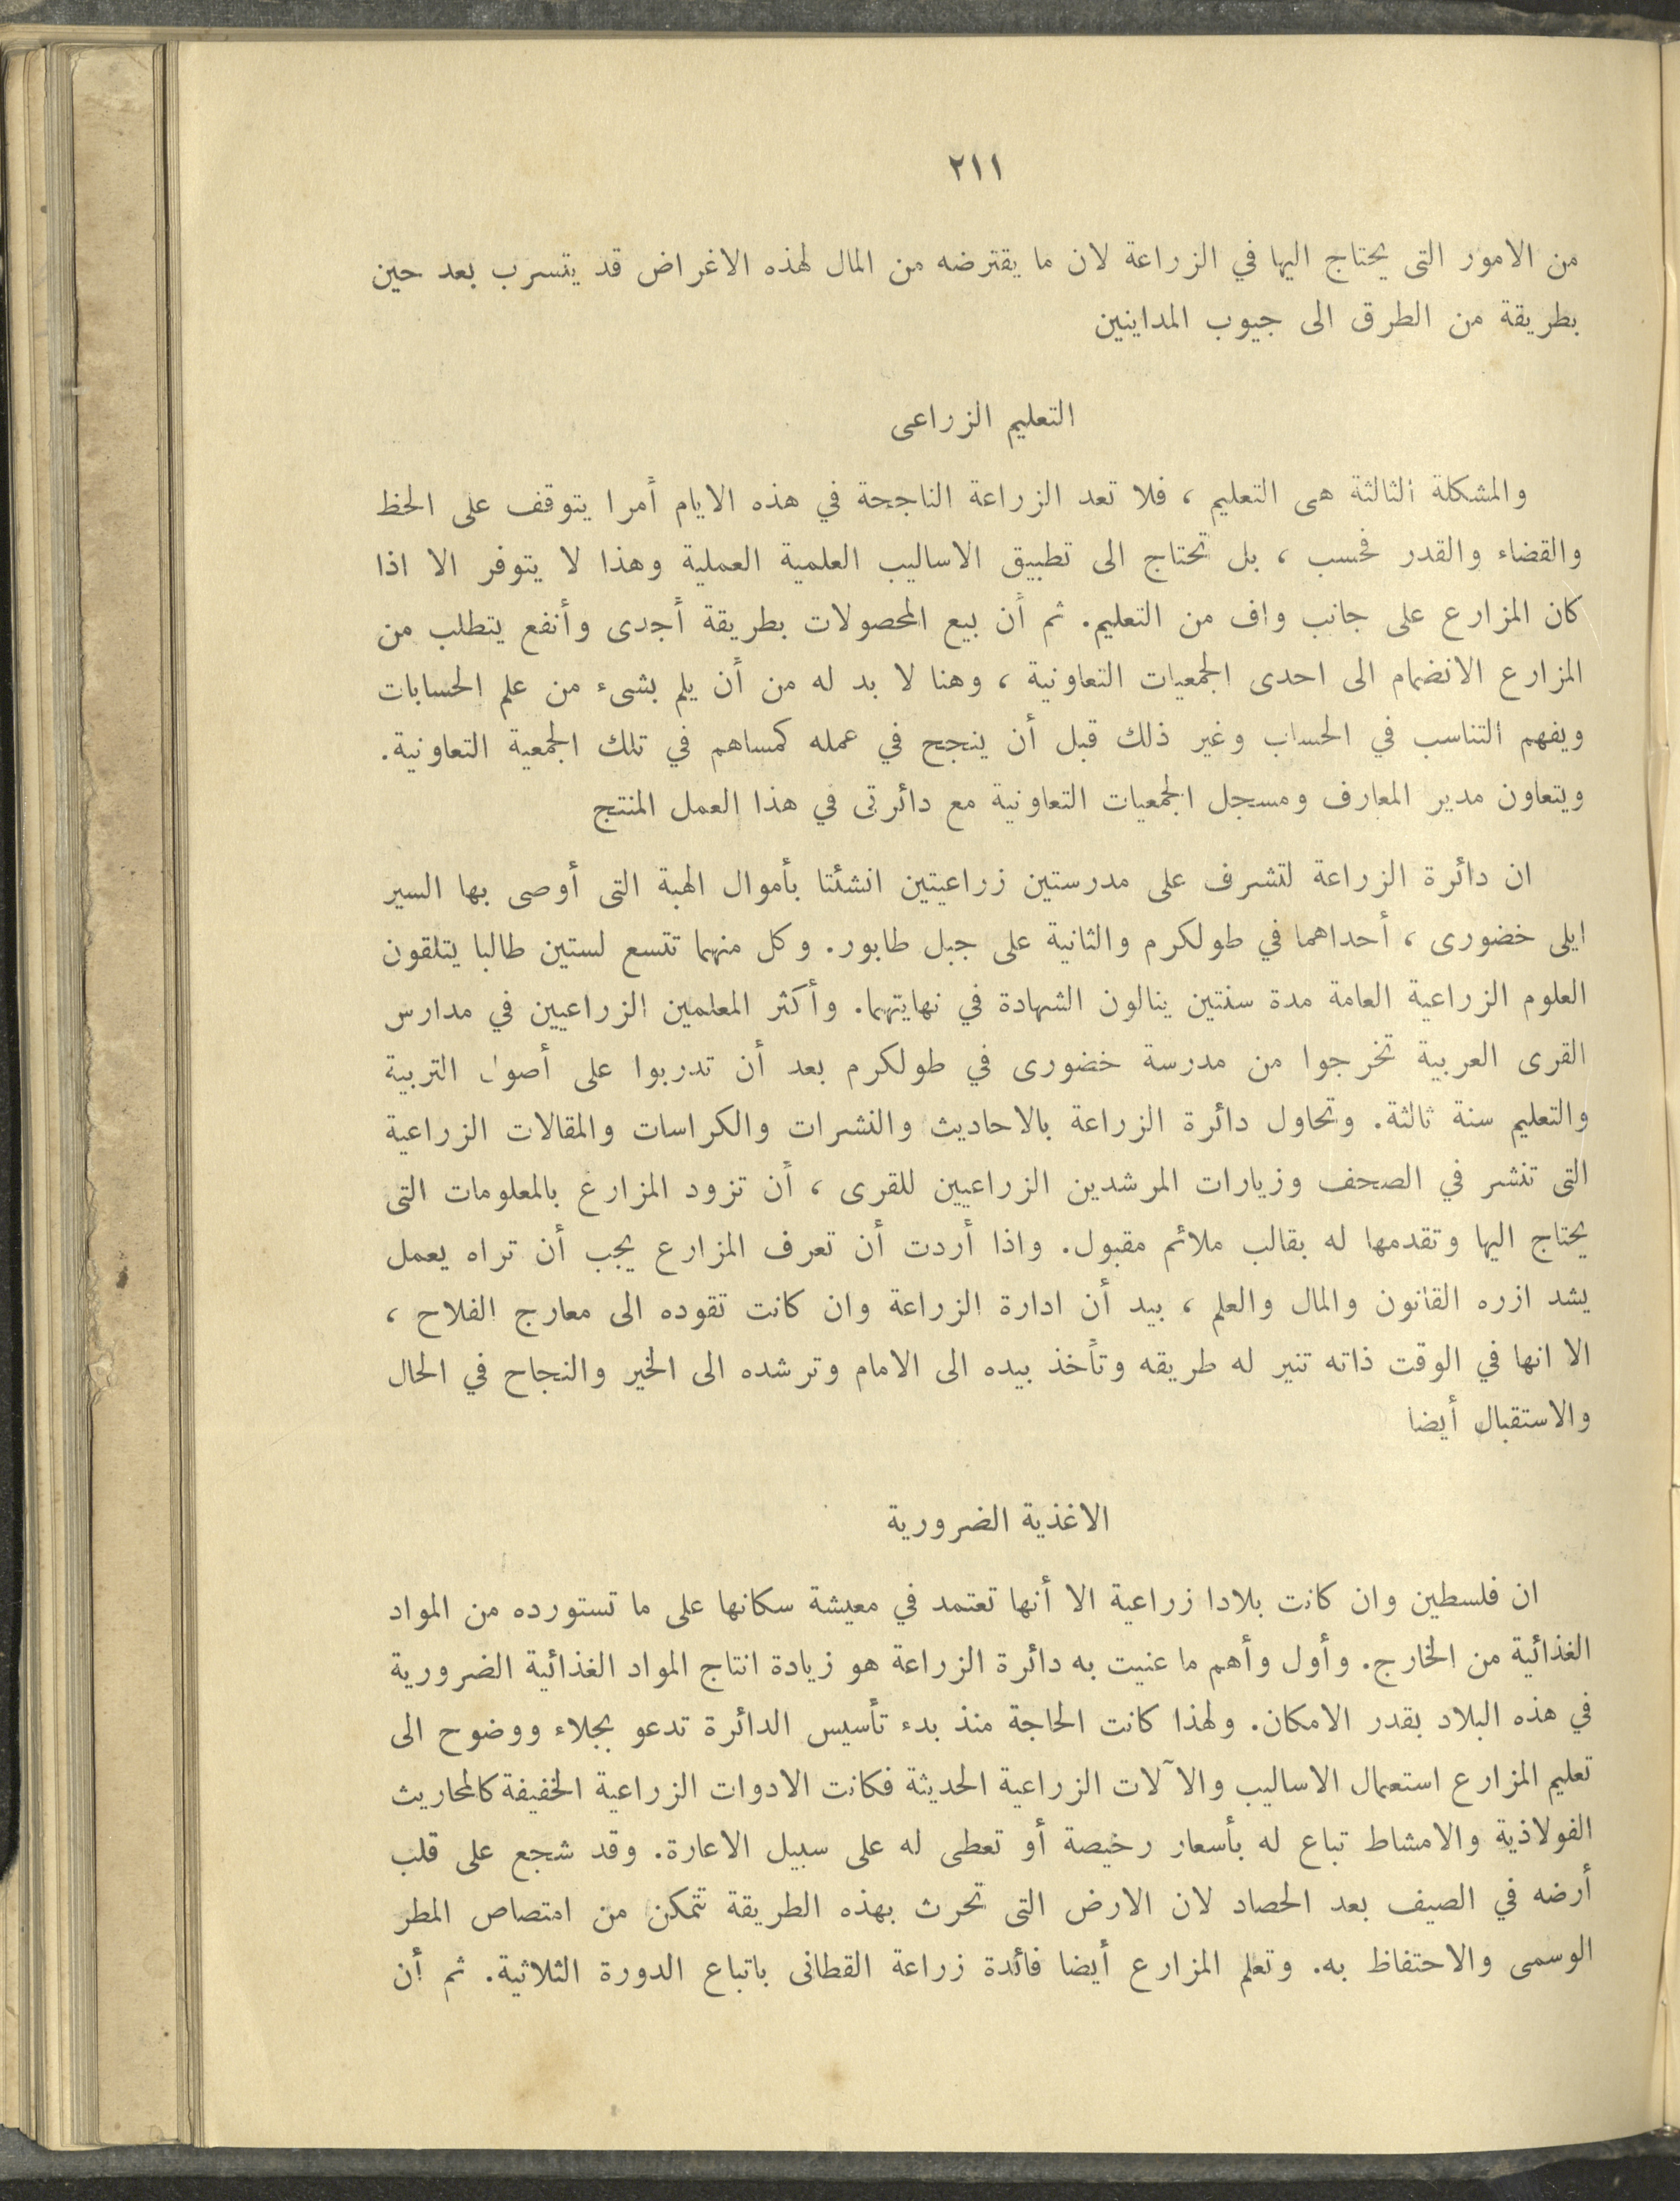 ٢١١
من الامور التى يحتاج اليها في الزراعة لان ما يقترضه من المال لهذه الاغراض قد يتسرب بعد حين
بطريقة من الطرق الى جيوب المداينين
التعليم الزراعى
والمشكلة الثالثة هى التعليم ، فلا تعد الزراعة الناجحة في هذه الايام أمرا يتوقف على الحظ
والقضاء والقدر فحسب ، بل تحتاج الى تطبيق الاساليب العلمية العملية وهذا لا يتوفر الا اذا
كان المزارع على جانب واف من التعليم. ثم أن بيع المحصولات بطريقة أجدى وأنفع يتطلب من
المزارع الانضمام الى احدى الجمعيات التعاونية ، وهنا لا بد له من أن يلم بشىء من علم الحسابات
ويفهم التناسب في الحساب وغير ذلك قبل أن ينجح في عمله كمساهم في تلك الجمعية التعاونية.
ويتعاون مدير المعارف ومسجل الجمعيات التعاونية مع دائرتى في هذا العمل المنتج
ان دائرة الزراعة لتشرف على مدرستين زراعيتين انشئتا بأموال الهبة التى أوصى بها السير
ايلى خضورى ، أحداهما في طولكرم والثانية على جبل طابور. وكل منهما تتسع لستين طالبا يتلقون
العلوم الزراعية العامة مدة سنتين ينالون الشهادة في نهايتهما. وأكثر المعلمين الزراعيين في مدارس
القرى العربية تخرجوا من مدرسة خضورى في طولكرم بعد أن تدربوا على أصول التربية
والتعليم سنة ثالثة. وتحاول دائرة الزراعة بالاحاديث والنشرات والكراسات والمقالات الزراعية
التى تنشر في الصحف وزيارات المرشدين الزراعيين للقرى ، أن تزود المزارع بالمعلومات التى
يحتاج اليها وتقدمها له بقالب ملائم مقبول. واذا أردت أن تعرف المزارع يجب أن تراه يعمل
يشد ازره القانون والمال والعلم ، بيد أن ادارة الزراعة وان كانت تقوده الى معارج الفلاح ،
الا انها في الوقت ذاته تنير له طريقه وتأخذ بيده الى الامام وترشده الى الخير والنجاح في الحال
والاستقبال أيضا
الاغذية الضرورية
ان فلسطين وان كانت بلادا زراعية الا أنها تعتمد في معيشة سكانها على ما تستورده من المواد
الغذائية من الخارج. وأول وأهم ما عنيت به دائرة الزراعة هو زيادة انتاج المواد الغذائية الضرورية
في هذه البلاد بقدر الامكان. ولهذا كانت الحاجة منذ بدء تأسيس الدائرة تدعو بجلاء ووضوح الى
تعليم المزارع استعمال الاساليب والآلات الزراعية الحديثة فكانت الادوات الزراعية الخفيفة كالمحاريث
الفولاذية والامشاط تباع له بأسعار رخيصة أو تعطى له على سبيل الاعارة. وقد شجع على قلب
أرضه في الصيف بعد الحصاد لان الارض التى تحرث بهذه الطريقة تتمكن من امتصاص المطر
الوسمى والاحتفاظ به. وتعلم المزارع أيضا فائدة زراعة القطانى باتباع الدورة الثلاثية. ثم أن